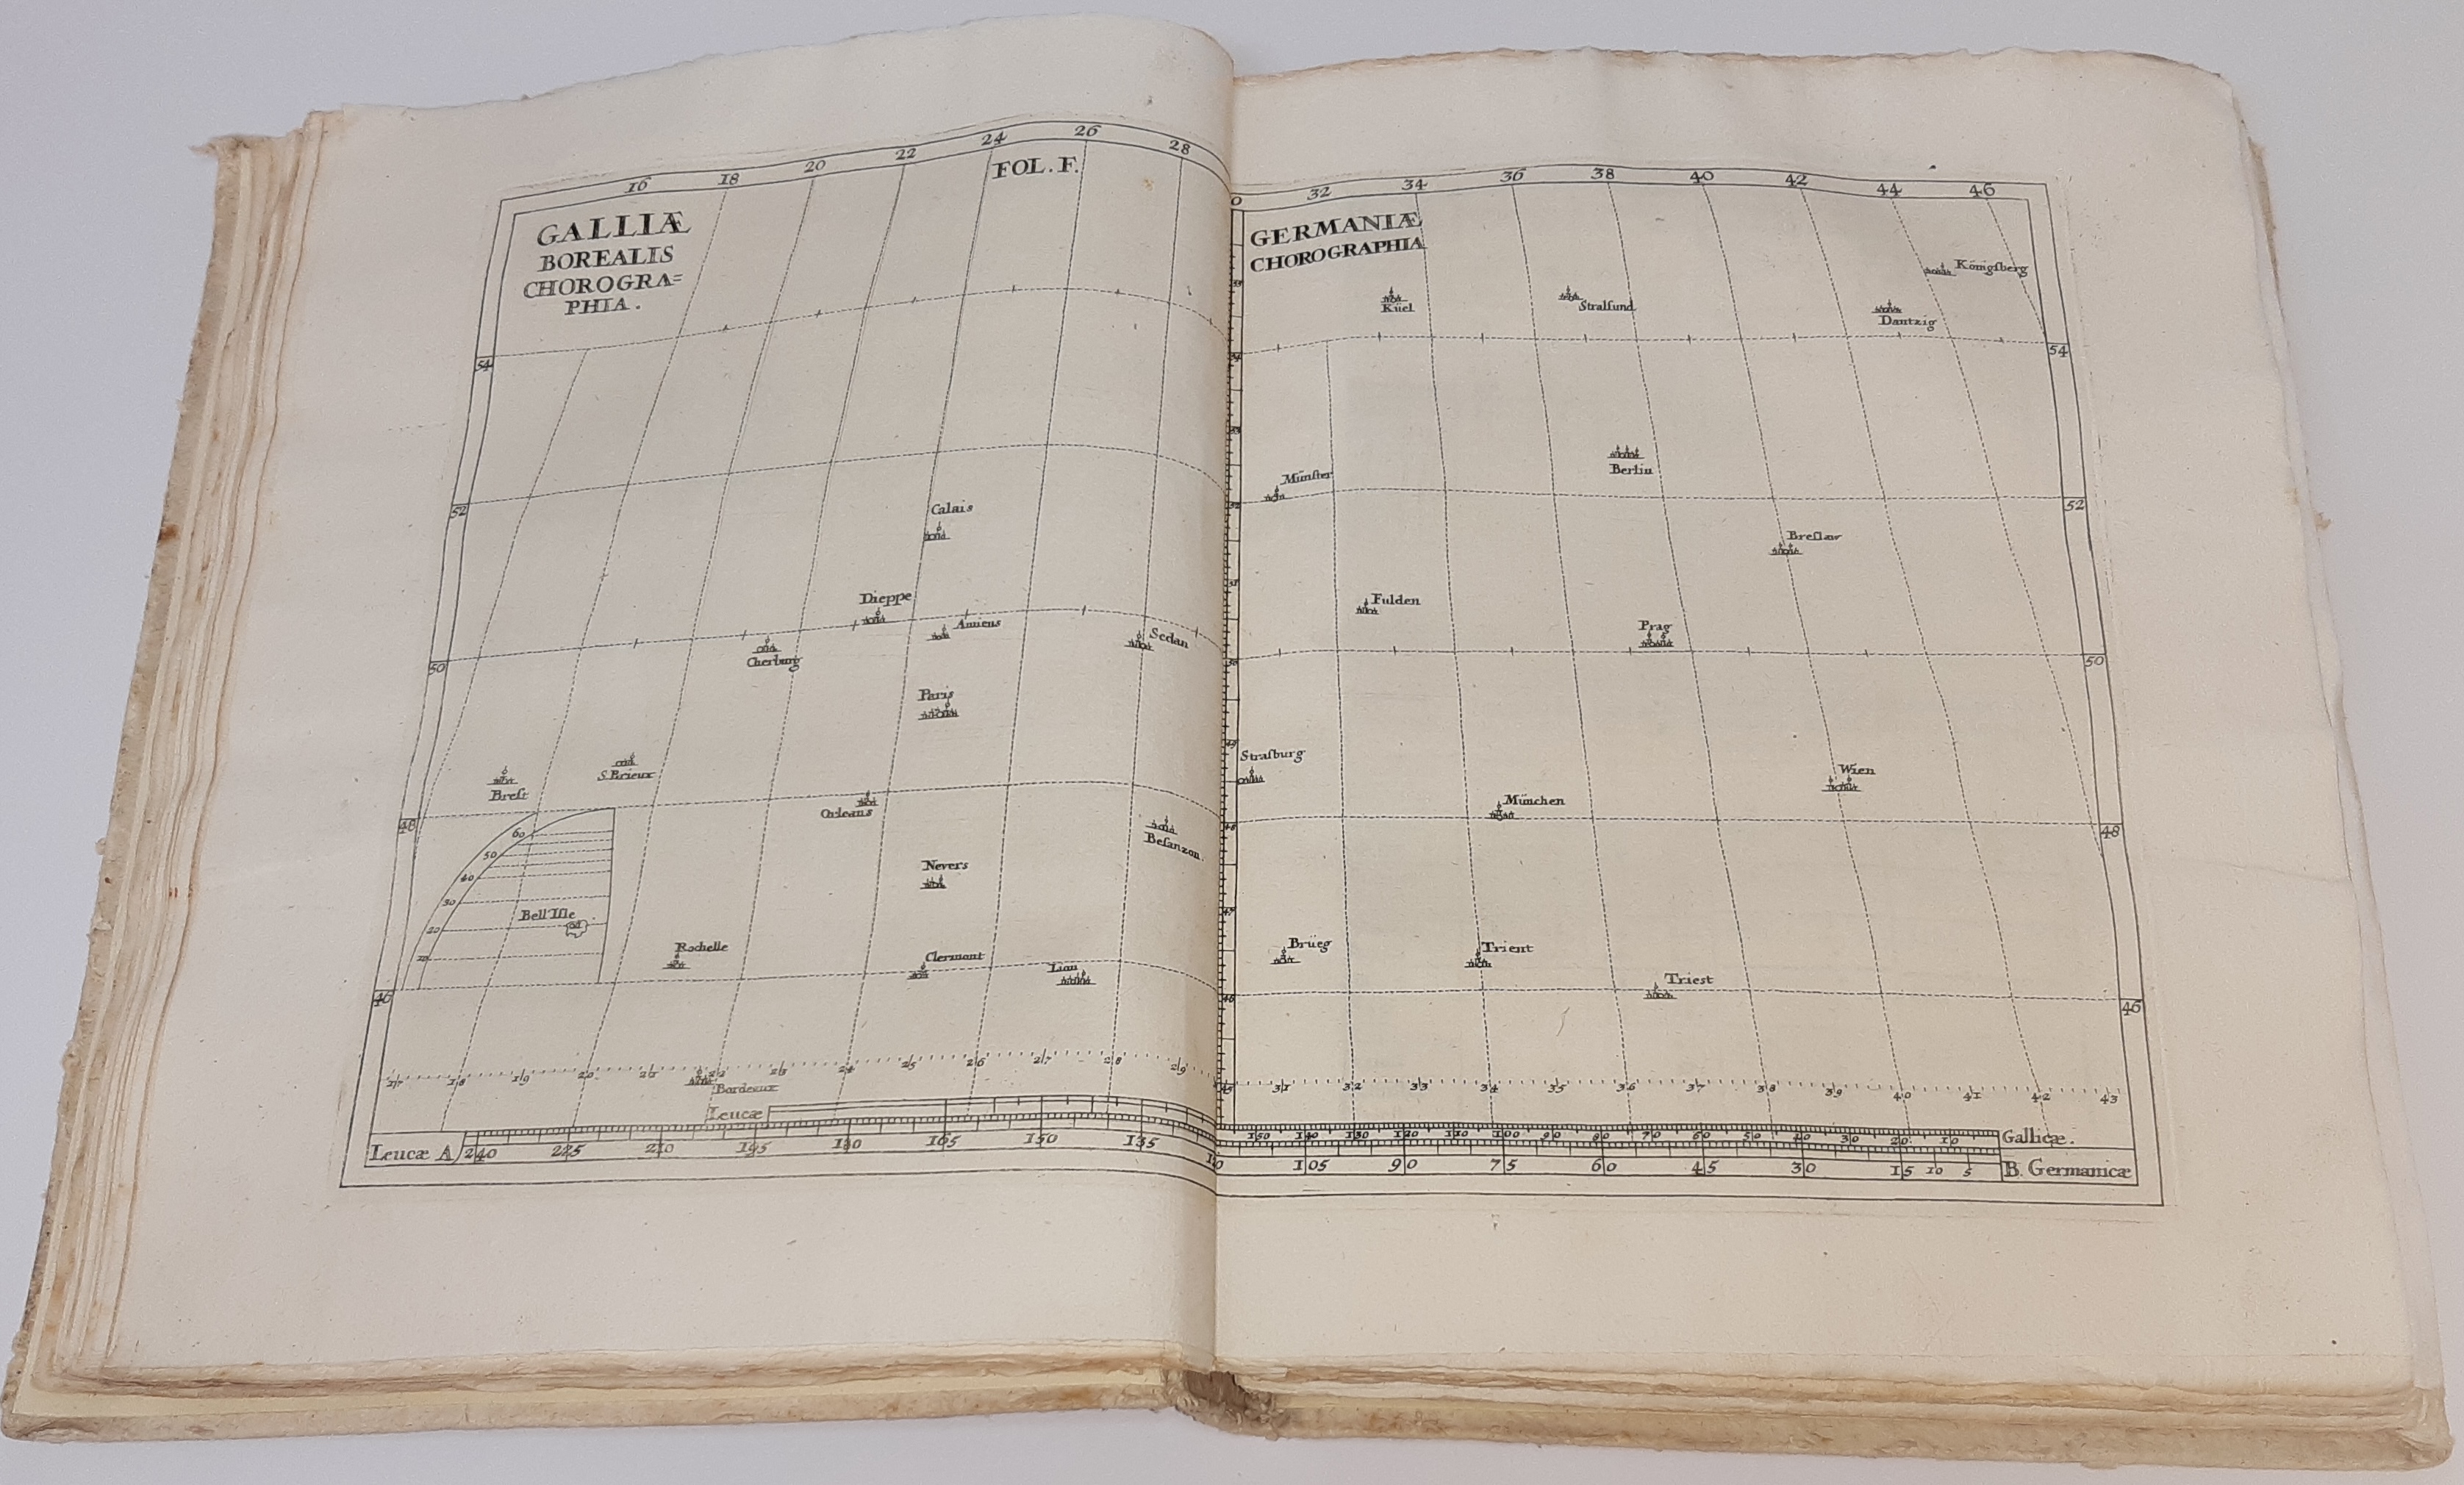 16 18 20 22 24 26 28
FOL. F.
GALLIÆ
BOREALIS
CHOROGRA=
PHIA.
54
52
50
48
46
Calais
Dieppe
Amiens
Cherburg
Sedan
Paris
S. Brieux
Breſt
Orleans
Beſanzon.
Nevers
60
50
40
30
20
10
Bell'Iſle
Rochelle
Clermont
Lion
17 18 19 20 21 22 23 24 25 26 27 28 29
Bordeaux
Leucæ
Leucæ A 240 225 210 195 180 165 150 135
32 34 36 38 40 42 44 46
GERMANIÆ
CHOROGRAPHIA
Königſberg
Küel
Stralſund
Dantzig
54
Münſter
Berlin
52
Breſlaw
Fulden
Prag
50
Straſburg
Wien
München
48
Brüeg
Trient
Triest
46
31 32 33 34 35 36 37 38 39 40 41 42 43
150 140 130 120 110 100 90 80 70 60 50 40 30 20 10 Gallicæ.
105 90 75 60 45 30 15 10 5 B. Germanicæ